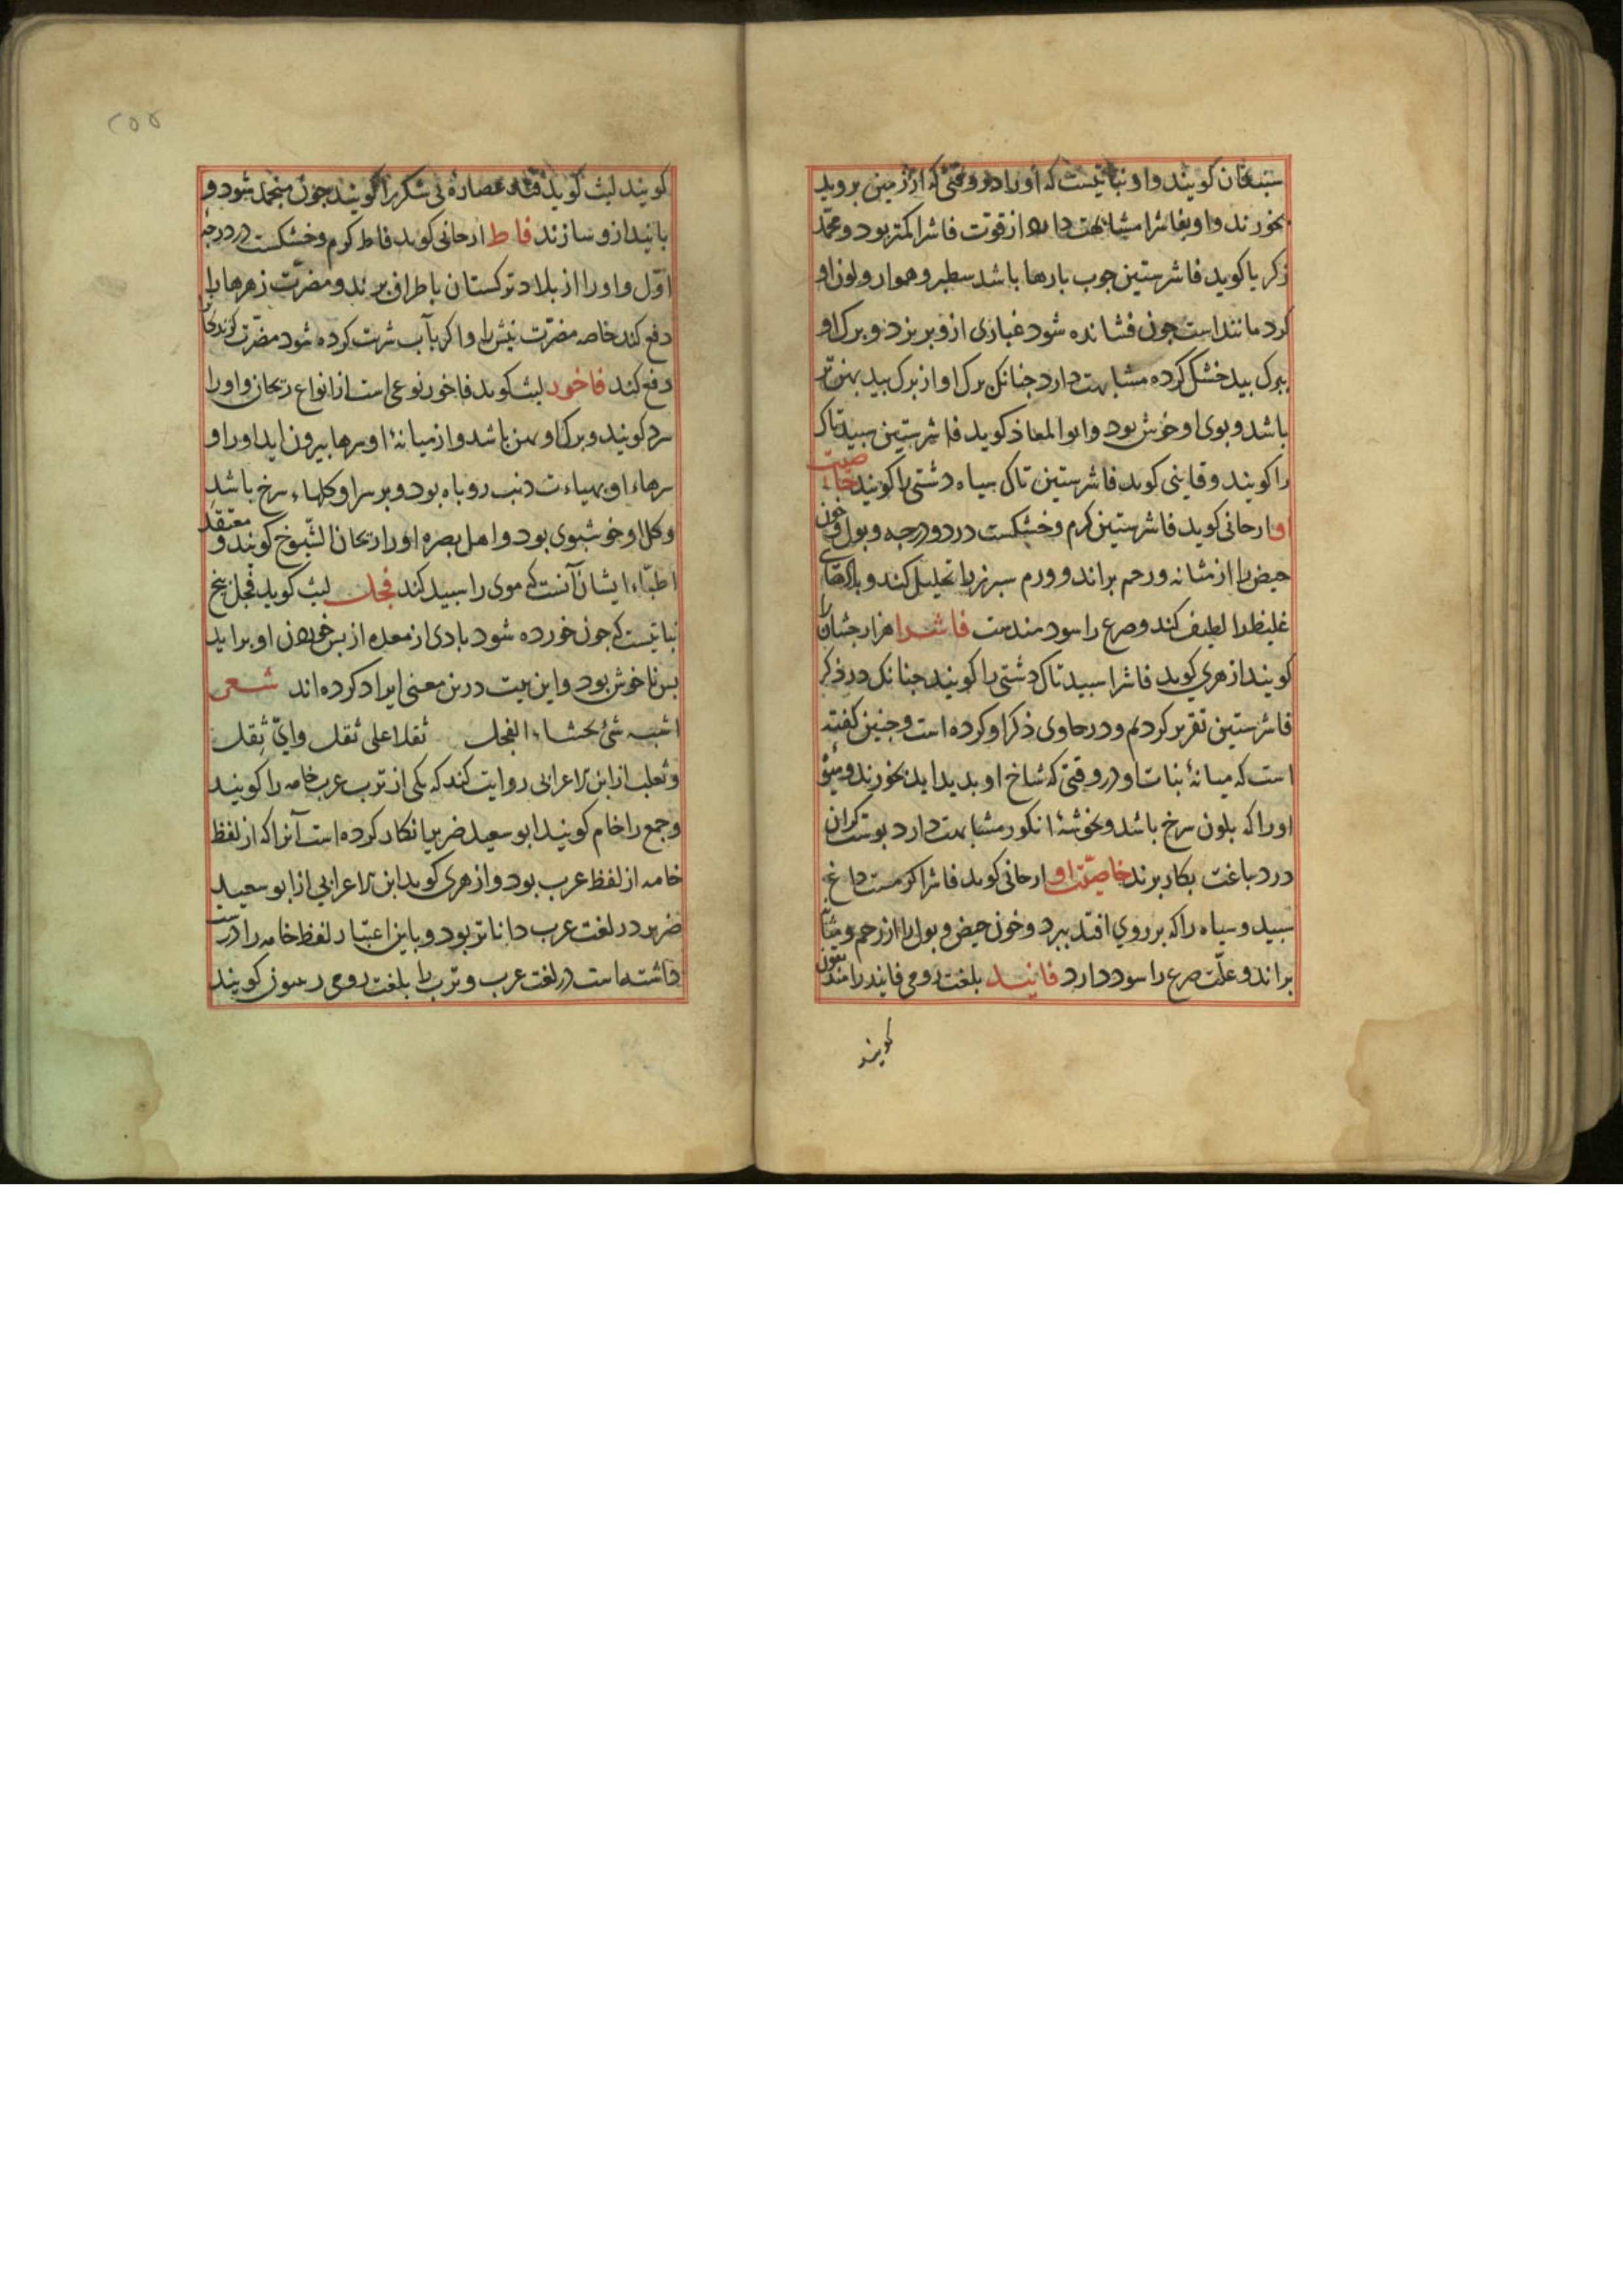 سبنغان کویند و او نباتیست که او را در وقتی که از زمین بروید
بخورند و او بفاشرا مشابهت دارد از قوت فاشرا کمتر بود و محمد
زکریا کوید فاشرستین جوب بارها باشد سطبر و هموار و لون او
کرد مانند است جون فشانده شود غباری ازو بریزد و برک او
ببرک بید خشک کرده مشابهت دارد جنانک برک او از برک بید بهن تر
باشد و بوی او خوش بود و ابو المعاذ کوید فاشرستین سبید تاک
را کویند و قاینی کوید فاشرستین تاک سیاه دشتی را کویند خاصیت
او ارجانی کوید فاشرستین کرم و خشکست در دو درجه و بول و خون
حیض را از مثانه و رحم براند و ورم سبرز را تحلیل کند و بادهای
غلیظ را لطیف کند و صرع را سودمندست فاشرا هزار جشان را
کویند ازهری کوید فاشرا سبید تاک دشتی را کویند جنانک در ذکر
فاشرستین تقریر کردیم و در حاوی ذکر او کرده است و جنین کفته
است که میانهٔ نبات او در وقتی که شاخ او بدید اید بخورند و میوهٔ
او را که بلون سرخ باشد و بخوشهٔ انکور مشابهت دارد بوست کران
در دباغت بکار برند خاصیت او ارجانی کوید فاشرا کرمست داغ
سبید و سیاه را که بر روی افتد ببرد و خون حیض و بول را از رحم و مثانه
براند و علت صرع را سود دارد فانید بلغت رومی فانید را
کویند
۲۵۵
کویند لیث کوید قند عصارهٔ نی شکر را کویند جون منجمد شود و
بانید ازو سازند فاط ارجانی کوید فاط کرم و خشکست در درجهٔ
اول و او را از بلاد ترکستان باطراف برند و مضرت زهرها را
دفع کند خاصه مضرت نیش را و اکر بآب شربت کرده شود مضرت کزندکان را
دفع کند فاخور لیث کوید فاخور نوعی است از انواع ریحان و او را
مرد کویند و برک او بهن باشد و از میانهٔ او سرها بیرون اید او را و
سرهاء او بهیاءت دنب روباه بود و بر سر او کلهاء سرخ باشد
و کل او خوشبوی بود و اهل بصره او را ریحان الشیوخ کویند و معتقد
اطباء ایشان آنست که موی را سبید کند فجل لیث کوید فجل بیخ
نباتیست که جون خورده شود بادی از معده از بس خوردن او براید
بس ناخوش بود و این بیت درین معنی ایراد کرده اند شعر
اشبه شئ بحشاء الفجل ثقلا علی ثقل وایّ ثقل
و ثعلب از ابن الاعرابی روایت کند که یکی از ترب عرب خامه را کویند
و جمع را خام کویند ابو سعید ضریر انکار کرده است آنرا که از لفظ
خامه از لفظ عرب بود و ازهری کوید ابن الاعرابی از ابو سعید
ضریر در لغت عرب داناتر بود و باین اعتبار لفظ خامه را درست
داشته است در لغت عرب و ترب را بلغت رومی رسون کویند